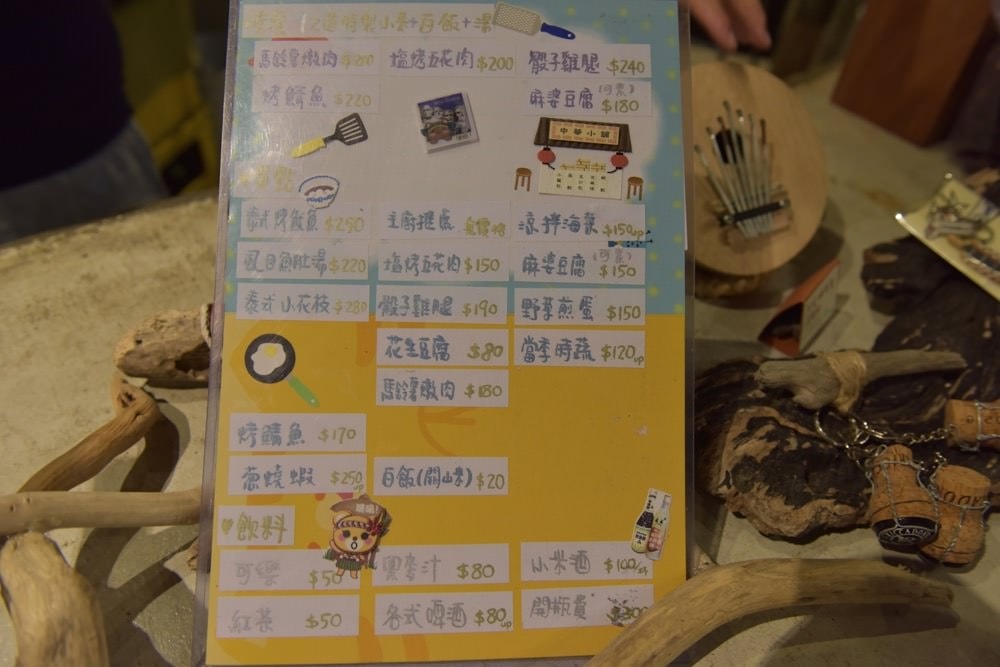 2道特製小菜+白飯+湯
馬鈴薯燉肉 $200 塩烤五花肉 $200 骰子雞腿 $240
烤鯖魚 $220 麻婆豆腐(可素) $180
中華小舖
單點
泰式烤魷魚 $250 主廚推薦 涼拌海菜 $150up
虱目魚肚湯 $220 塩烤五花肉 $150 麻婆豆腐(可素) $150
泰式小花枝 $280 骰子雞腿 $190 野菜煎蛋 $150
花生豆腐 $80 當季時蔬 $120up
馬鈴薯燉肉 $180
烤鯖魚 $170
蔥燒蝦 $250up 白飯(關山米) $20
♥飲料
可樂 $50 黑麥汁 $80 小米酒 $100/杯
紅茶 $50 各式啤酒 $80up 開瓶費 $200